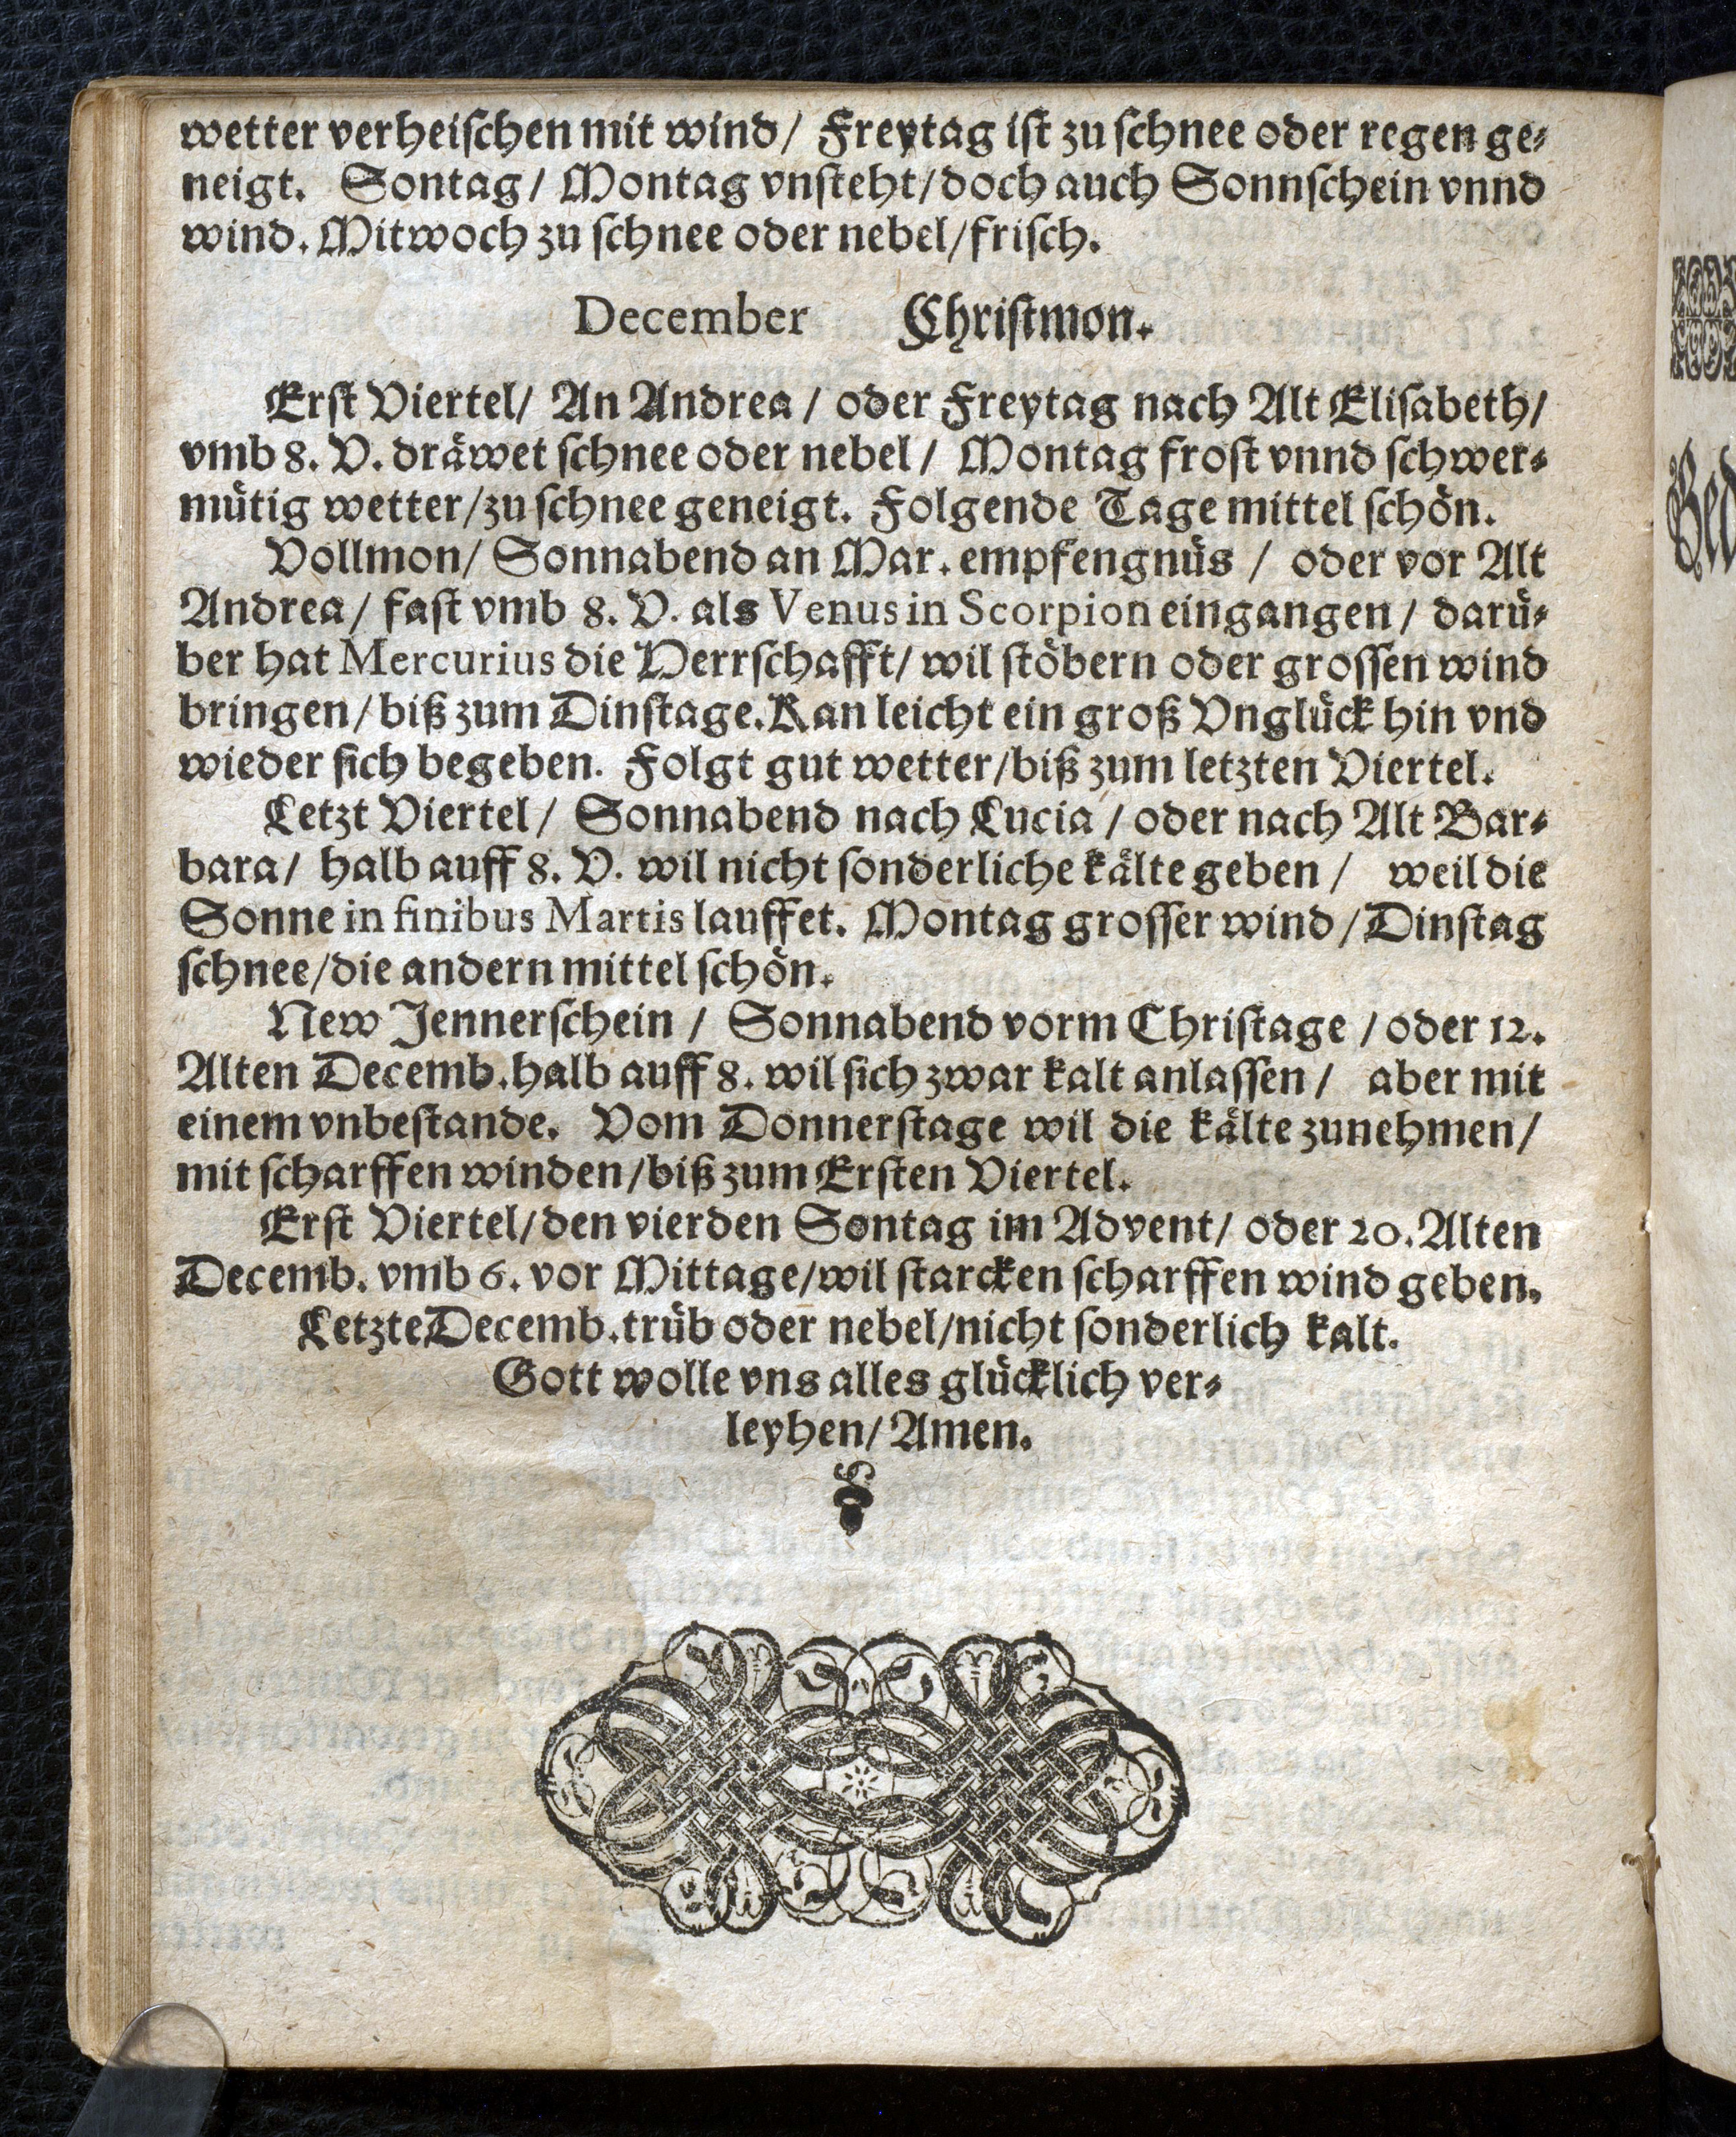 wetter verheischen mit wind/ Freytag ist zu schnee oder regen ge-
neigt. Sontag/ Montag vnsteht/doch auch Sonnschein vnnd
wind. Mitwoch zu schnee oder nebel/frisch.
December Christmon.
Erst Viertel/ An Andrea / oder Freytag nach Alt Elisabeth/
vmb 8. V. dräwet schnee oder nebel / Montag frost vnnd schwer-
mütig wetter/zu schnee geneigt. Folgende Tage mittel schön.
Vollmon/ Sonnabend an Mar. empfengnüs / oder vor Alt
Andrea / fast vmb 8. V. als Venus in Scorpion eingangen / darü-
ber hat Mercurius die Herrschafft/ wil stöbern oder grossen wind
bringen/biß zum Dinstage. Kan leicht ein groß Vnglück hin vnd
wieder sich begeben. Folgt gut wetter/biß zum letzten Viertel.
Letzt Viertel/ Sonnabend nach Lucia / oder nach Alt Bar-
bara/ halb auff 8. V. wil nicht sonderliche kälte geben / weil die
Sonne in finibus Martis lauffet. Montag grosser wind/Dinstag
schnee/die andern mittel schön.
New Jennerschein / Sonnabend vorm Christage / oder 12.
Alten Decemb. halb auff 8. wil sich zwar kalt anlassen / aber mit
einem vnbestande. Vom Donnerstage wil die kälte zunehmen/
mit scharffen winden/biß zum Ersten Viertel.
Erst Viertel/den vierden Sontag im Advent/ oder 20. Alten
Decemb. vmb 6. vor Mittage/wil starcken scharffen wind geben.
Letzte Decemb. trüb oder nebel/nicht sonderlich kalt.
Gott wolle vns alles glücklich ver-
leyhen/ Amen.